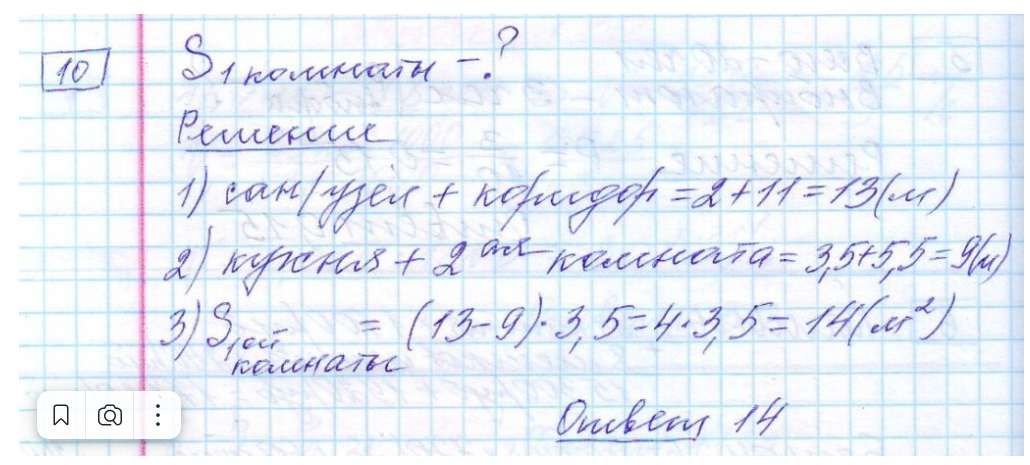 10
S₁ комнаты - ?
Решение
1) сан/узел + коридор = 2 + 11 = 13 (м)
2) кухня + 2 ая комната = 3,5 + 5,5 = 9 (м)
3) S₁ой комнаты = (13 - 9) · 3,5 = 4 · 3,5 = 14 (м²)
Ответ 14